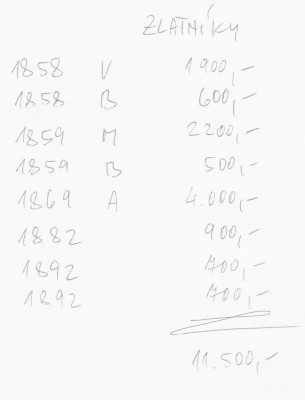 ZLATNÍKY
1858 V 1900,-
1858 B 600,-
1859 M 2200,-
1859 B 500,-
1869 A 4.000,-
1882 900,-
1892 700,-
1892 700,-
11.500,-